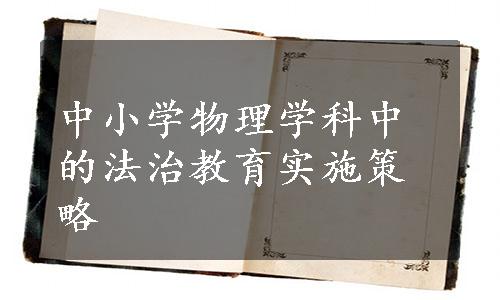 中小学物理学科中
的法治教育实施策
略